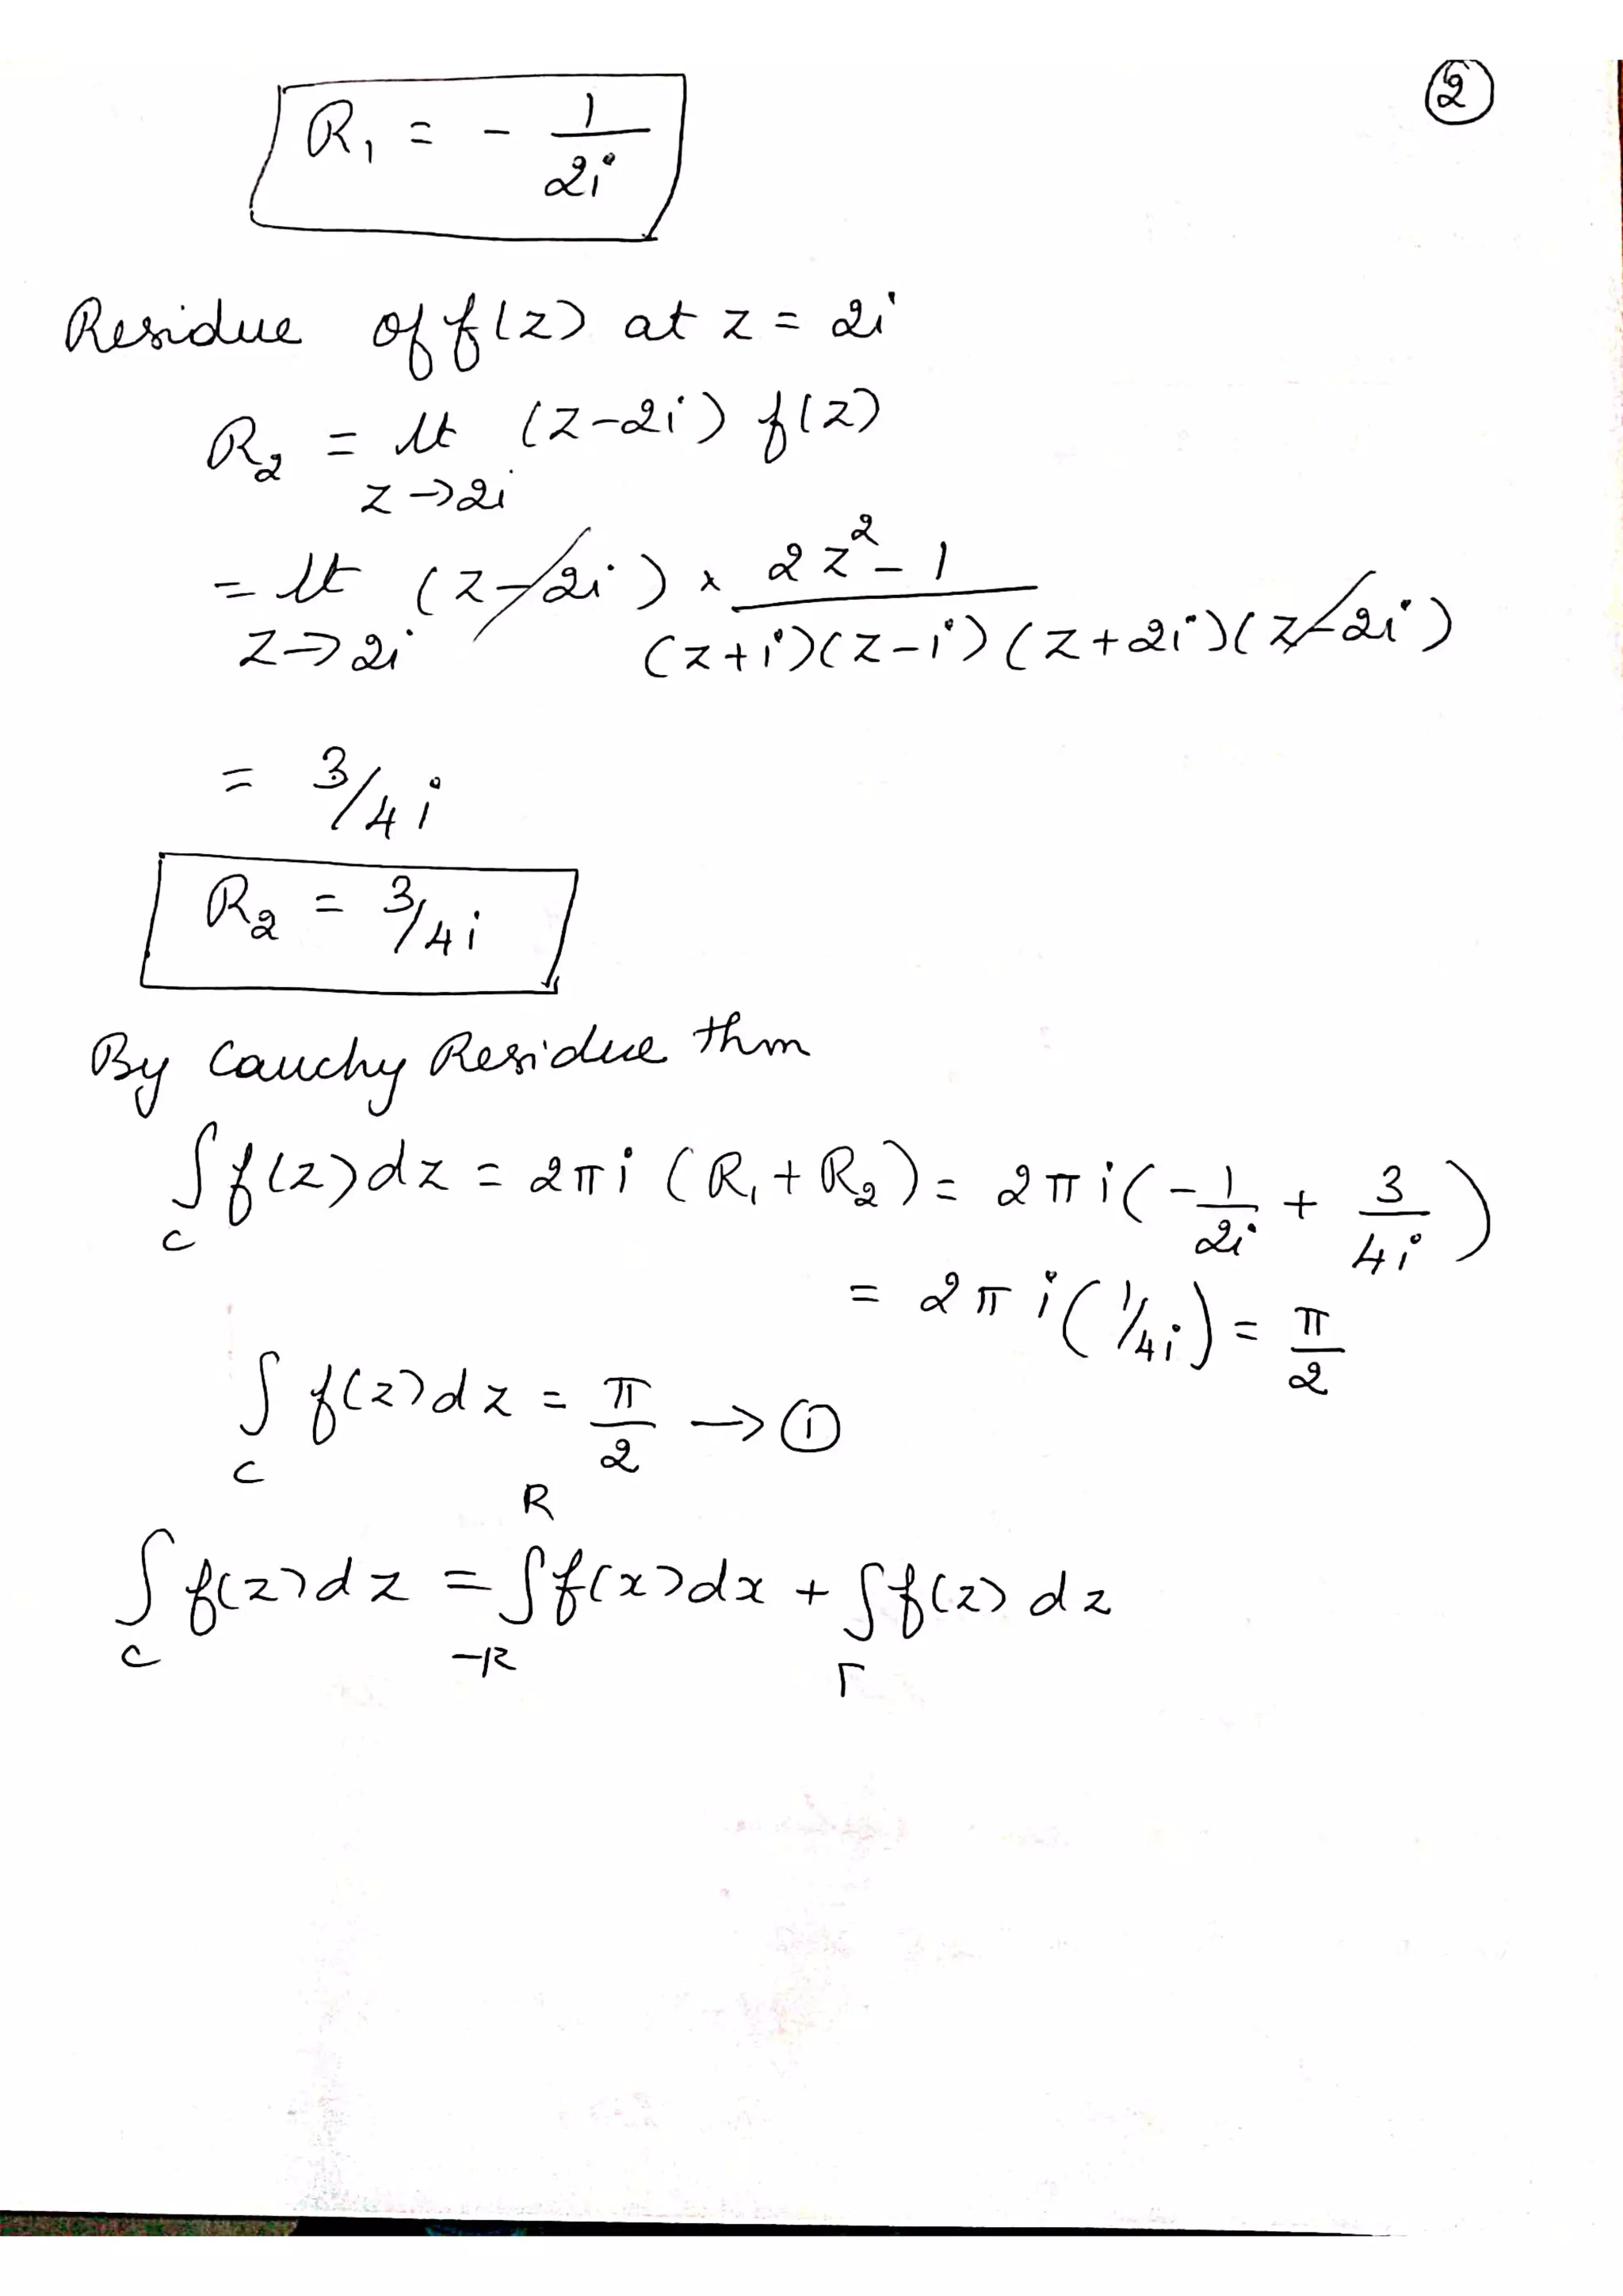 ②
R₁ = - 1/2i
Residue of f(z) at z = 2i
R₂ = lt (z-2i) f(z)
z→2i
= lt (z-2i) × 2z²-1 / (z+i)(z-i)(z+2i)(z-2i)
z→2i
= 3/4i
R₂ = 3/4i
By Cauchy Residue thm
∫_C f(z)dz = 2πi (R₁+R₂) = 2πi(-1/2i + 3/4i)
= 2πi(1/4i) = π/2
∫_C f(z)dz = π/2 → ①
∫_C f(z)dz = ∫_{-R}^{R} f(x)dx + ∫_Γ f(z)dz